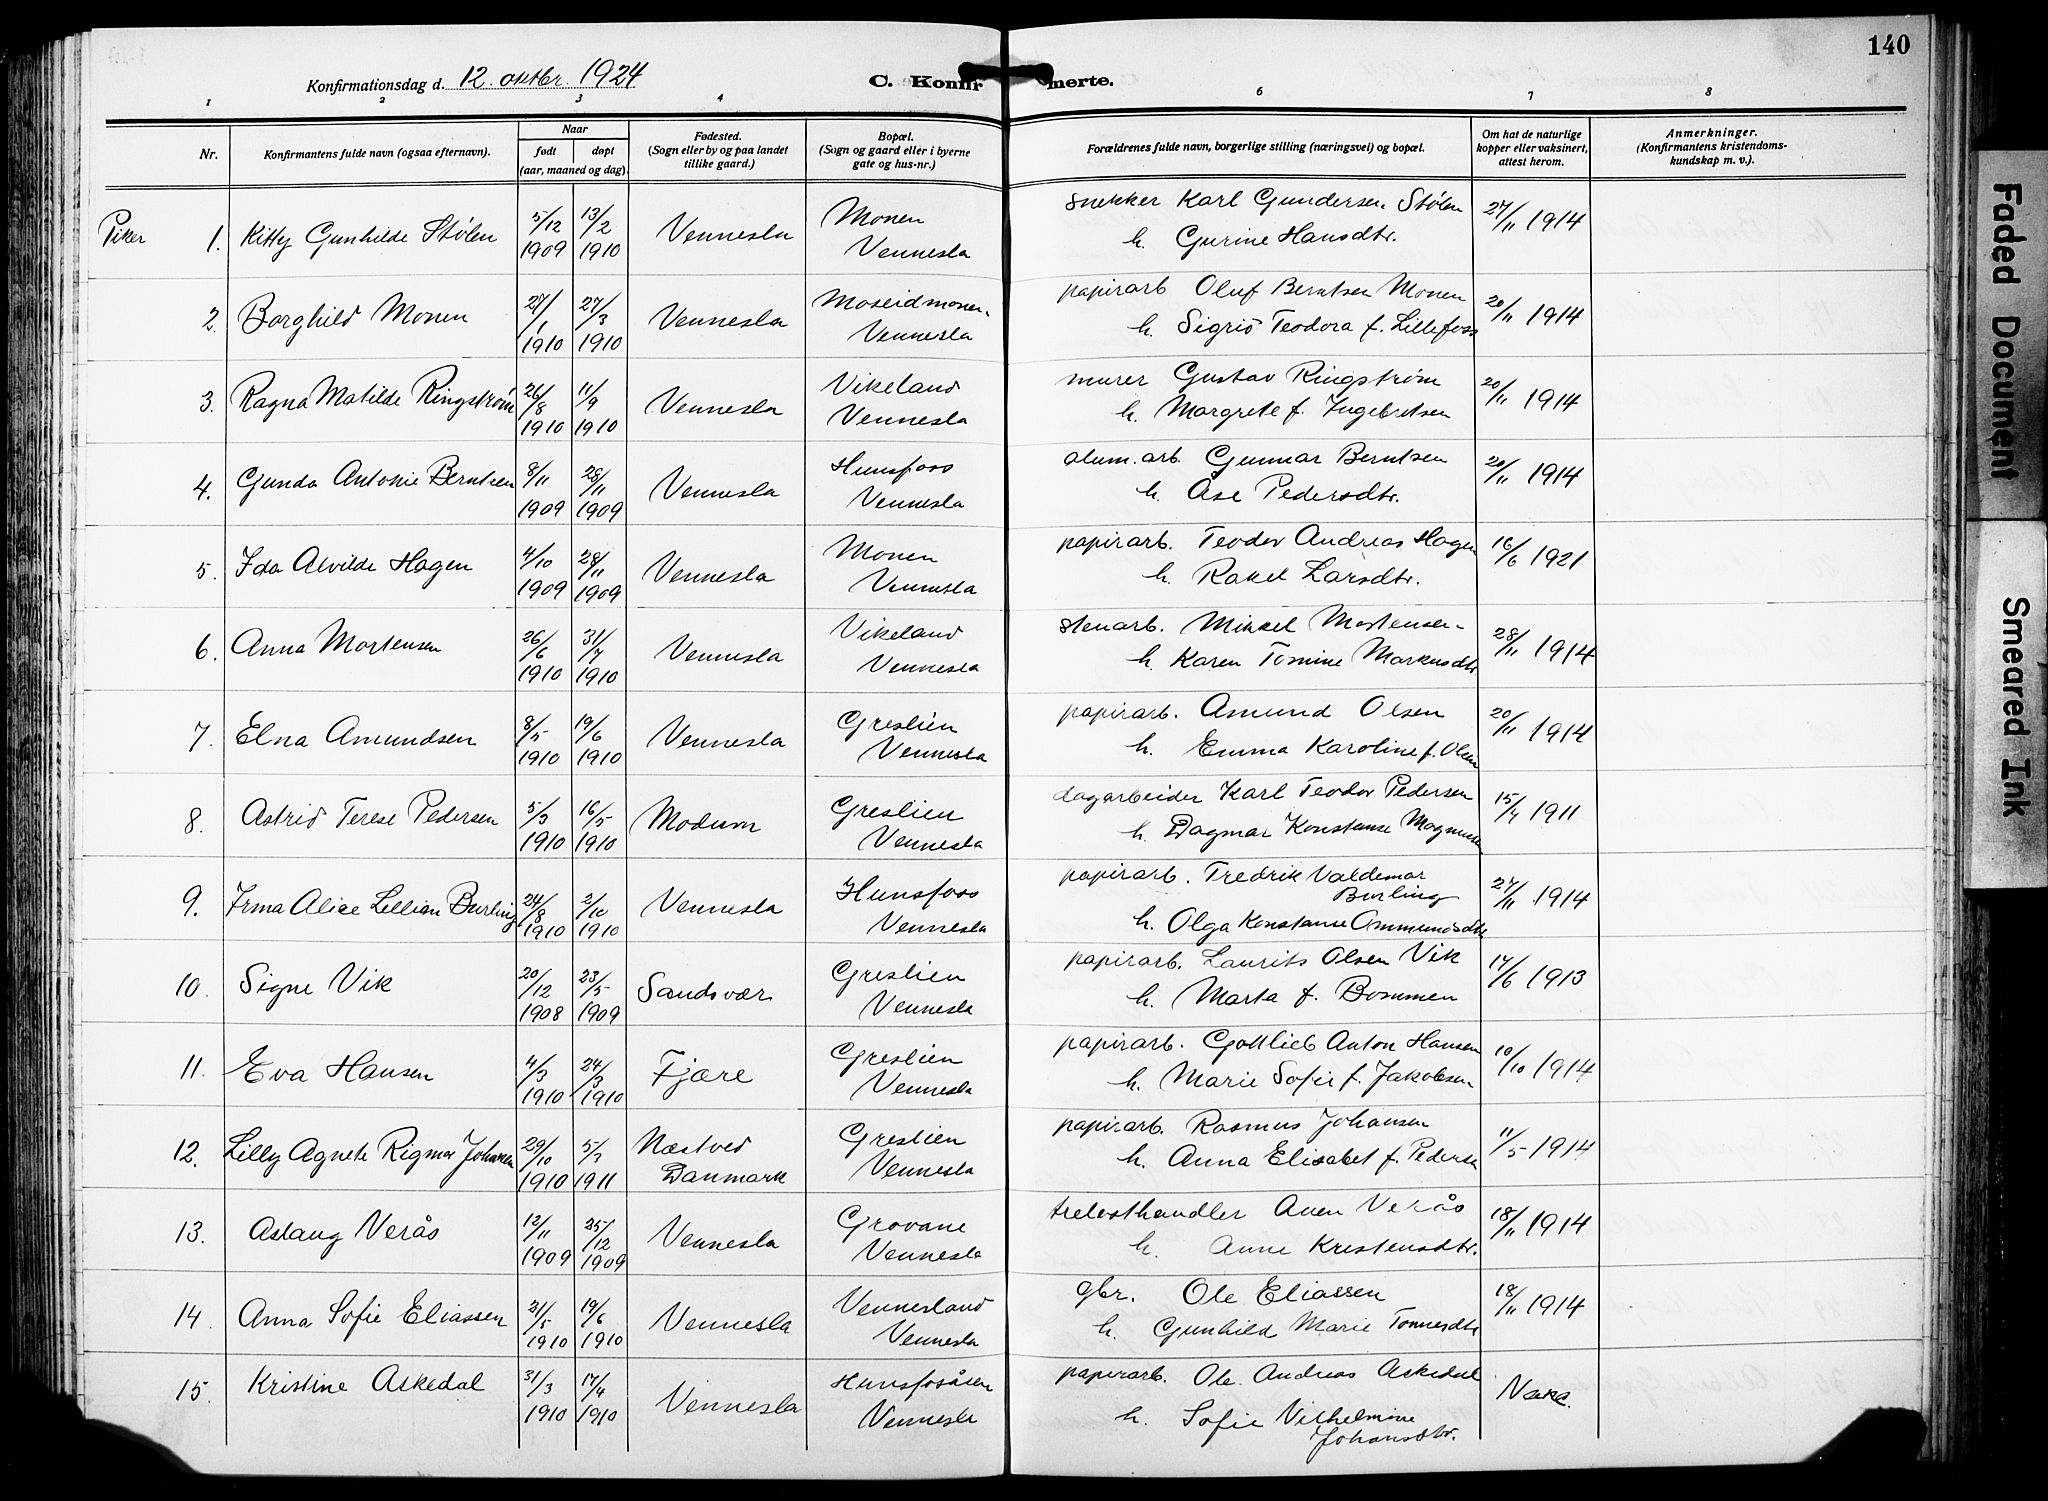 140
Konfirmationsdag d. 12. oktbr. 1924
C. Konfirmerte.
1 2 3 4 5 6 7 8
Nr.
Konfirmantens fulde navn (ogsaa efternavn).
Naar
født døpt
(aar, maaned og dag).
Fødested.
(Sogn eller by og paa landet
tillike gaard.)
Bopæl.
(Sogn og gaard eller i byerne
gate og hus-nr.)
Forældrenes fulde navn, borgerlige stilling (næringsvei) og bopæl.
Om hat de naturlige
kopper eller vaksinert,
attest herom.
Anmerkninger.
(Konfirmantens kristendoms-
kundskap m. v.).
Piker
1. Kitty Gunhilde Stølen 5/12 1909 13/2 1910 Vennesla Monen Vennesla
snekker Karl Gundersen Stølen 27/11 1914
h. Gurine Hansdtr.
2. Borghild Monen 27/1 1910 27/3 1910 Vennesla Moseidmonen. Vennesla
papirarb Oluf Berntsen Monen 20/11 1914
h. Sigrid Teodora f. Lillefoss
3. Ragna Matilde Ringstrøm 26/8 1910 11/9 1910 Vennesla Vikeland Vennesla
murer Gustav Ringstrøm 20/11 1914
h. Margrete f. Ingebretsen
4. Gunda Antonie Berntsen 8/11 1909 28/11 1909 Vennesla Hunsfoss Vennesla
alum. arb. Gunnar Berntsen 20/11 1914
h. Åse Pedersdtr.
5. Ida Alvilde Hagen 4/10 1909 28/11 1909 Vennesla Monen Vennesla
papirarb. Teodor Andreas Hagen 16/6 1921
h. Rakel Larsdtr.
6. Anna Mortensen 26/6 1910 31/7 1910 Vennesla Vikeland Vennesla
stenarb. Mikkel Mortensen 28/11 1914
h. Karen Tomine Markusdtr
7. Elna Amundsen 8/5 1910 19/6 1910 Vennesla Greslien Vennesla
papirarb. Amund Olsen 20/11 1914
h. Emma Karoline f. Olsen
8. Astrid Terese Pedersen 5/3 1910 16/5 1910 Modum Greslien Vennesla
dagarbeider Karl Teodor Pedersen 15/4 1911
h. Dagmar Konstanse
9. Irma Alice Lillian Burling 24/8 1910 2/10 1910 Vennesla Hunsfoss Vennesla
papirarb. Fredrik Valdemar 27/11 1914
Burling
h. Olga Konstanse Ammundsdtr
10. Signe Vik 20/12 1908 23/5 1909 Sandsvær Greslien Vennesla
papirarb. Laurits Olsen Vik 17/6 1913
h. Marta f. Bommen
11. Eva Hansen 4/3 1910 24/3 1910 Fjære Greslien Vennesla
papirarb. Gottlieb Anton Hansen 10/10 1914
h. Marie Sofie f. Jakobsen
12. Lilly Agnete Rigmor Johansen 29/10 1910 5/3 1911 Næstved Danmark Greslien Vennesla
papirarb. Rasmus Johansen 11/5 1914
h. Anna Elisabet f. Pedersen
13. Aslaug Verås 12/11 1909 25/12 1909 Vennesla Grovane Vennesla
trelasthandler Anen Verås 18/11 1914
h. Anne Kristensdtr.
14. Anna Sofie Eliassen 21/5 1910 19/6 1910 Vennesla Vennesland Vennesla
gbr. Ole Eliassen 18/11 1914
h. Gunhild Marie Tonnesdtr
15. Kristine Askedal 31/3 1910 17/4 1910 Vennesla Hunsfosåsen Vennesla
papirarb. Ole Andreas Askedal
h. Sofie Vilhelmine
Johansdtr.
Faded Document
Smeared Ink